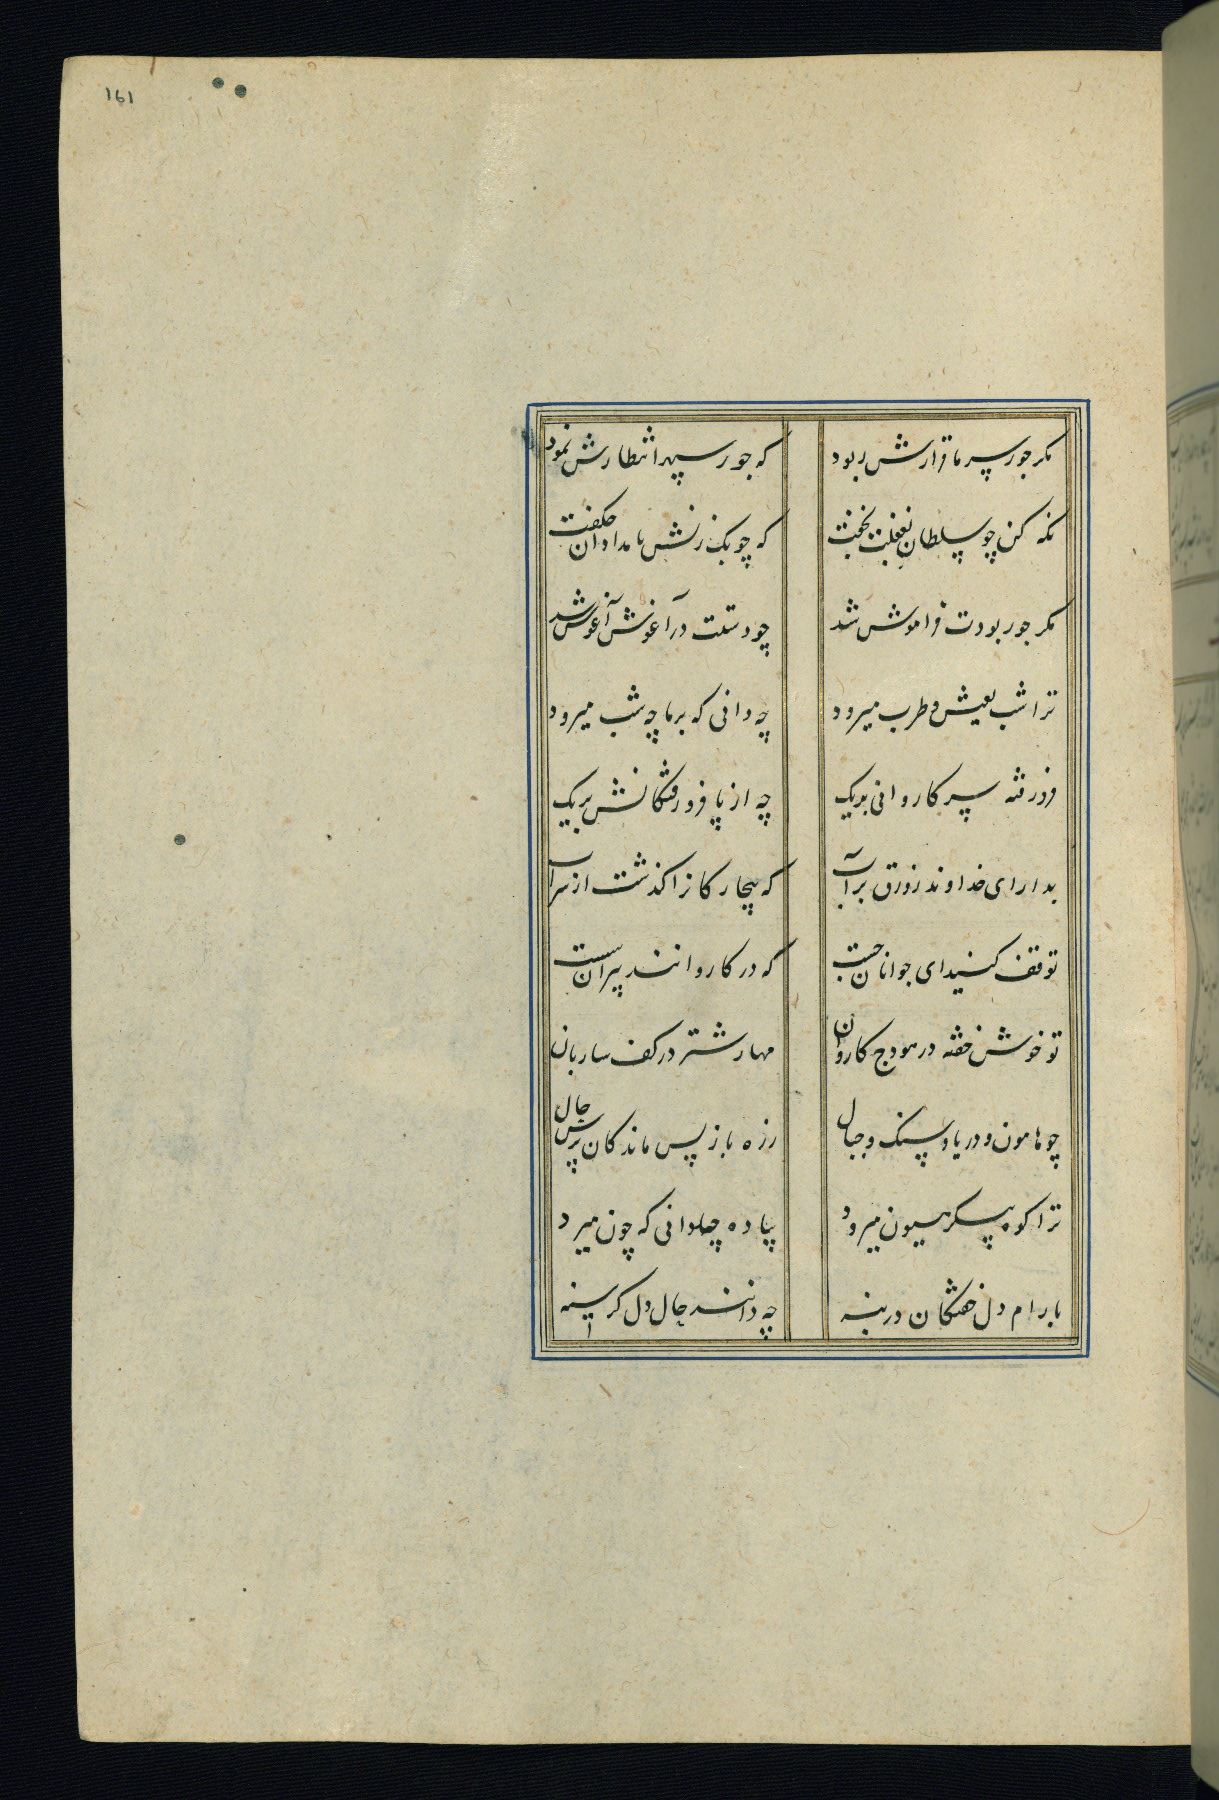 ۱۶۱
مکر جور سرما قرارش ربود
که جور سپهر انتظارش نمود
نکه کن چو سلطان بغفلت بخفت
که چوبک زنش بامدادان چکفت
مکر جور بودت فراموش شد
چو دستت در آغوش آغوش شد
ترا شب بعیش و طرب میرود
چه دانی که بر ما چه شب میرود
فرو رفته سر کاروانی بدیک
چه از پا فرو رفتکانش بریک
بدار ای خداوند زورق بر آب
که بیچارکانرا کذشت از سر آب
توقف کنید ای جوانان چست
که در کاروانند پیران سست
تو خوش خفته در هودج کاروان
مهار شتر در کف ساربان
چو هامون و دریا و سنک و جبال
ز ره باز پس ماندکان پرس حال
ترا کوه پیکر هیون میرود
پیاده چه دانی که چون میرد
بارام دل خفتکان در بنه
چه دانند حال دل کرسنه